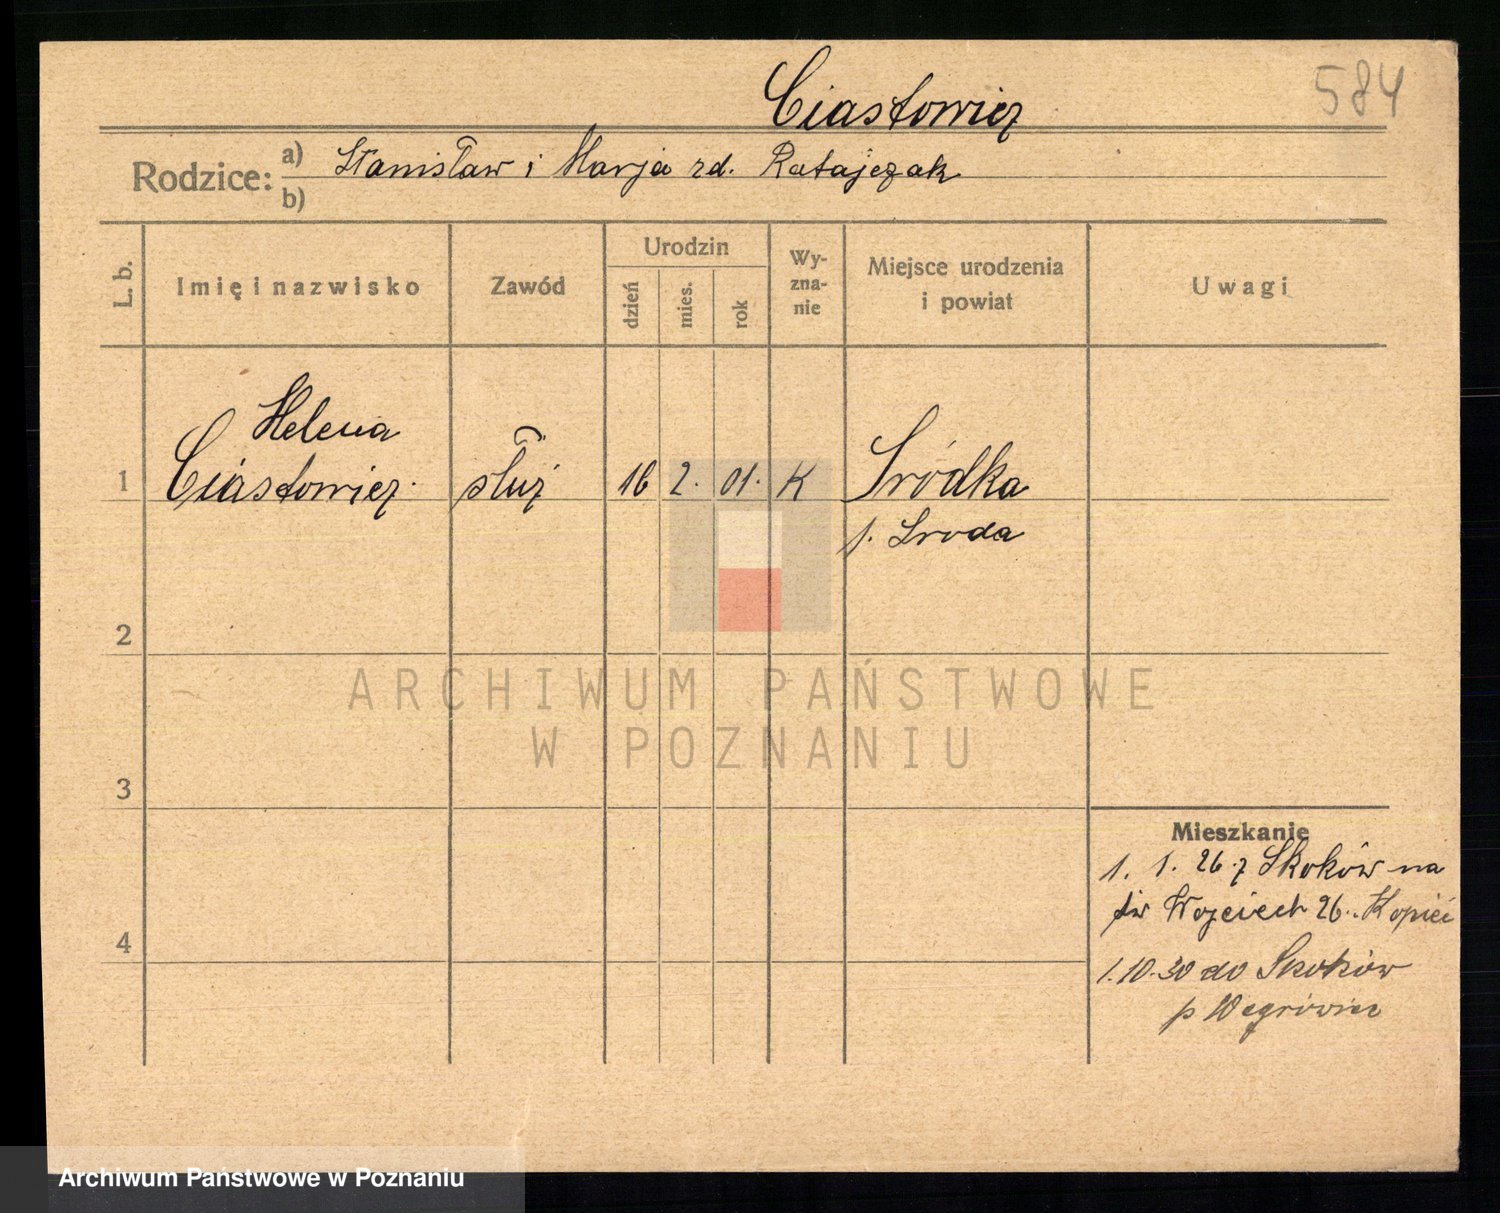 584
Ciastowicz
Rodzice: a) Stanisław i Marja zd. Ratajczak
b)
L. b.
Imię i nazwisko
Zawód
Urodzin
dzień
mies.
rok
Wy-
zna-
nie
Miejsce urodzenia
i powiat
Uwagi
Helena
1 Ciastowicz służ 16 2. 01. K Sródka
p. Sroda
2
3
4
Mieszkanie
1. 1. 26 z Skoków na
św Wojciech 26
1.10.30 do Skoków
p Wągrówiec
ARCHIWUM PAŃSTWOWE
W POZNANIU
Archiwum Państwowe w Poznaniu